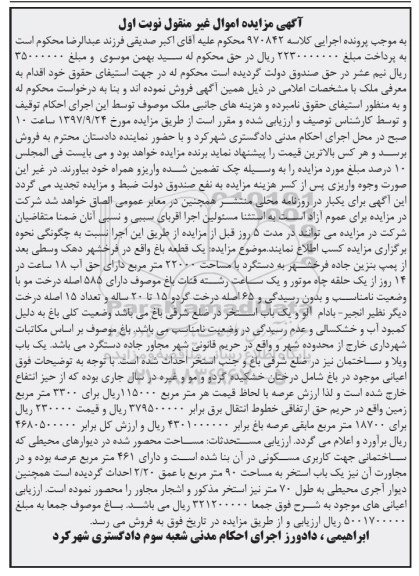 آگهی مزایده اموال غیر منقول نوبت اول
به موجب پرونده اجرایی کلاسه ۹۷۰۸۴۲ محکوم علیه آقای اکبر صدیقی فرزند عبدالرضا محکوم است
به پرداخت مبلغ ۲۲۳۰۰۰۰۰۰۰ ریال در حق محکوم له سید بهمن موسوی و مبلغ ۳۵۰۰۰۰۰۰
ریال نیم عشر در حق صندوق دولت گردیده است محکوم له در جهت استیفای حقوق خود اقدام به
معرفی ملک با مشخصات اعلامی در ذیل همین آگهی فروش نموده اند و بنا به درخواست محکوم له
و به منظور استیفای حقوق نامبرده و هزینه های جانبی ملک موصوف توسط این اجرای احکام توقیف
و توسط کارشناس توصیف و ارزیابی شده و مقرر است از طریق مزایده مورخ ۱۳۹۷/۹/۲۴ ساعت ۱۰
صبح در محل اجرای احکام مدنی دادگستری شهرکرد و با حضور نماینده دادستان محترم به فروش
برسد و هر کس بالاترین قیمت را پیشنهاد نماید برنده مزایده خواهد بود و می بایست فی المجلس
۱۰ درصد مبلغ مورد مزایده را به وسیله چک تضمین شده واریزو همراه خود بیاورند. در غیر این
صورت وجوه واریزی پس از کسر هزینه مزایده به نفع صندوق دولت ضبط و مزایده تجدید می گردد
این آگهی برای یکبار در روزنامه محلی منتشر همچنین در معابر عمومی الصاق خواهد شد شرکت
در مزایده برای عموم آزاد است به استثنا مسئولین اجرا اقربای سببی و نسبی آنان ضمنا متقاضیان
شرکت در مزایده می توانند در مدت ۵ روز قبل از مزایده از طریق این اجرا نسبت به چگونگی نحوه
برگزاری مزایده کسب اطلاع نمایند.موضوع مزایده: یک قطعه باغ واقع در فرخشهر دهک وسطی بعد
از پمپ بنزین جاده فرخشهر به دستگرد با مساحت ۲۲۰۰۰ متر مربع دارای حق آب ۱۸ ساعت در
۱۴ روز از یک حلقه چاه موتور و یک ساعت رشته قنات باغ موصوف دارای ۵۸۵ اصله درخت مو با
وضعیت نامناسب و بدون رسیدگی و ۶۵ اصله درخت گردو ۱۵ تا ۲۰ ساله و تعداد ۱۵ اصله درخت
دیگر نظیر انجیر - بادام آلو و یک باب استخر در ضلع شرقی باغ می باشد وضعیت کلی باغ به دلیل
کمبود آب و خشکسالی و عدم رسیدگی در وضعیت نامناسب می باشد. باغ موصوف بر اساس مکاتبات
شهرداری خارج از محدوده شهر و واقع در حریم قانونی شهر مجاور جاده دستگرد می باشد. یک باب
ویلا و ساختمان نیز در ضلع شرقی باغ و جنب استخر احداث شده است. با توجه به توضیحات فوق
اعیانی موجود در باغ شامل درختان خشکیده گردو و مو و غیره در سال جاری بوده که از حیز انتفاع
خارج شده است و لذا ارزش عرصه با لحاظ قیمت هر متر مربع ۱۱۵۰۰۰ریال برای ۳۳۰۰ متر مربع
زمین واقع در حریم حق ارتفاقی خطوط انتقال برق برابر ۳۷۹۵۰۰۰۰۰ ریال و قیمت ۲۳۰۰۰۰ ریال
برای ۱۸۷۰۰ متر مربع مابقی عرصه باغ برابر ۴۳۰۱۰۰۰۰۰۰ ریال و ارزش کل برابر ۴۶۸۰۵۰۰۰۰۰
ریال برآورد و اعلام می گردد. ارزیابی مستحدثات: مساحت محصور شده در دیوارهای محیطی که
ساختمانی جهت کاربری مسکونی در آن بنا شده است و دارای ۴۶۱ متر مربع عرصه بوده و در
مجاورت آن نیز یک باب استخر به مساحت ۹۰ متر مربع با عمق ۲/۲۰ احداث گردیده است همچنین
دیوار آجری محیطی به طول ۷۰ متر نیز استخر مذکور و اشجار مجاور را محصور نموده است. ارزیابی
اعیانی های موجود به شرح فوق جمعا ۳۲۱۲۰۰۰۰۰ ریال می باشد. باغ موصوف جمعا به مبلغ
۵۰۰۱۷۰۰۰۰۰ ریال ارزیابی و از طریق مزایده در تاریخ فوق به فروش می رسد.
ابراهیمی ، دادورز اجرای احکام مدنی شعبه سوم دادگستری شهرکرد